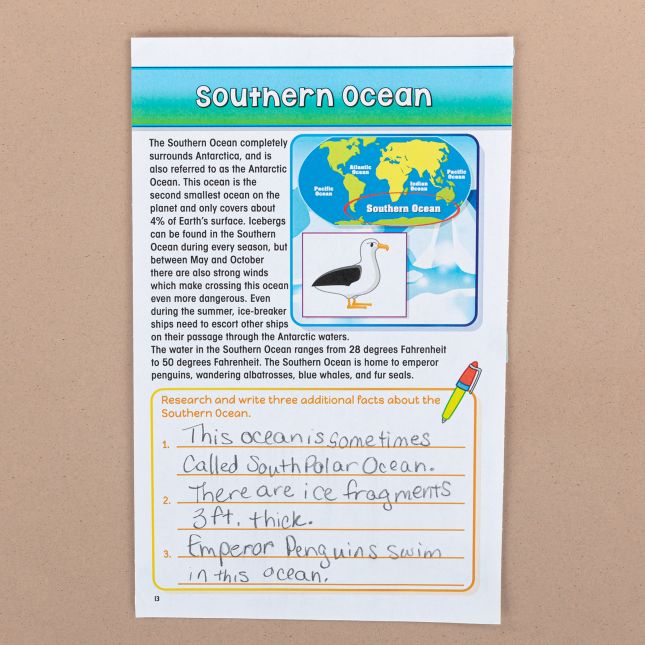 Southern Ocean
The Southern Ocean completely
surrounds Antarctica, and is
also referred to as the Antarctic
Ocean. This ocean is the
second smallest ocean on the
planet and only covers about
4% of Earth's surface. Icebergs
can be found in the Southern
Ocean during every season, but
between May and October
there are also strong winds
which make crossing this ocean
even more dangerous. Even
during the summer, ice-breaker
ships need to escort other ships
on their passage through the Antarctic waters.
The water in the Southern Ocean ranges from 28 degrees Fahrenheit
to 50 degrees Fahrenheit. The Southern Ocean is home to emperor
penguins, wandering albatrosses, blue whales, and fur seals.
Atlantic
Ocean
Pacific
Ocean
Indian
Ocean
Pacific
Ocean
Southern Ocean
Research and write three additional facts about the
Southern Ocean.
1. This ocean is sometimes
Called South Polar Ocean.
2. There are ice fragments
3ft. thick.
3. Emperor Penguins swim
in this ocean.
13